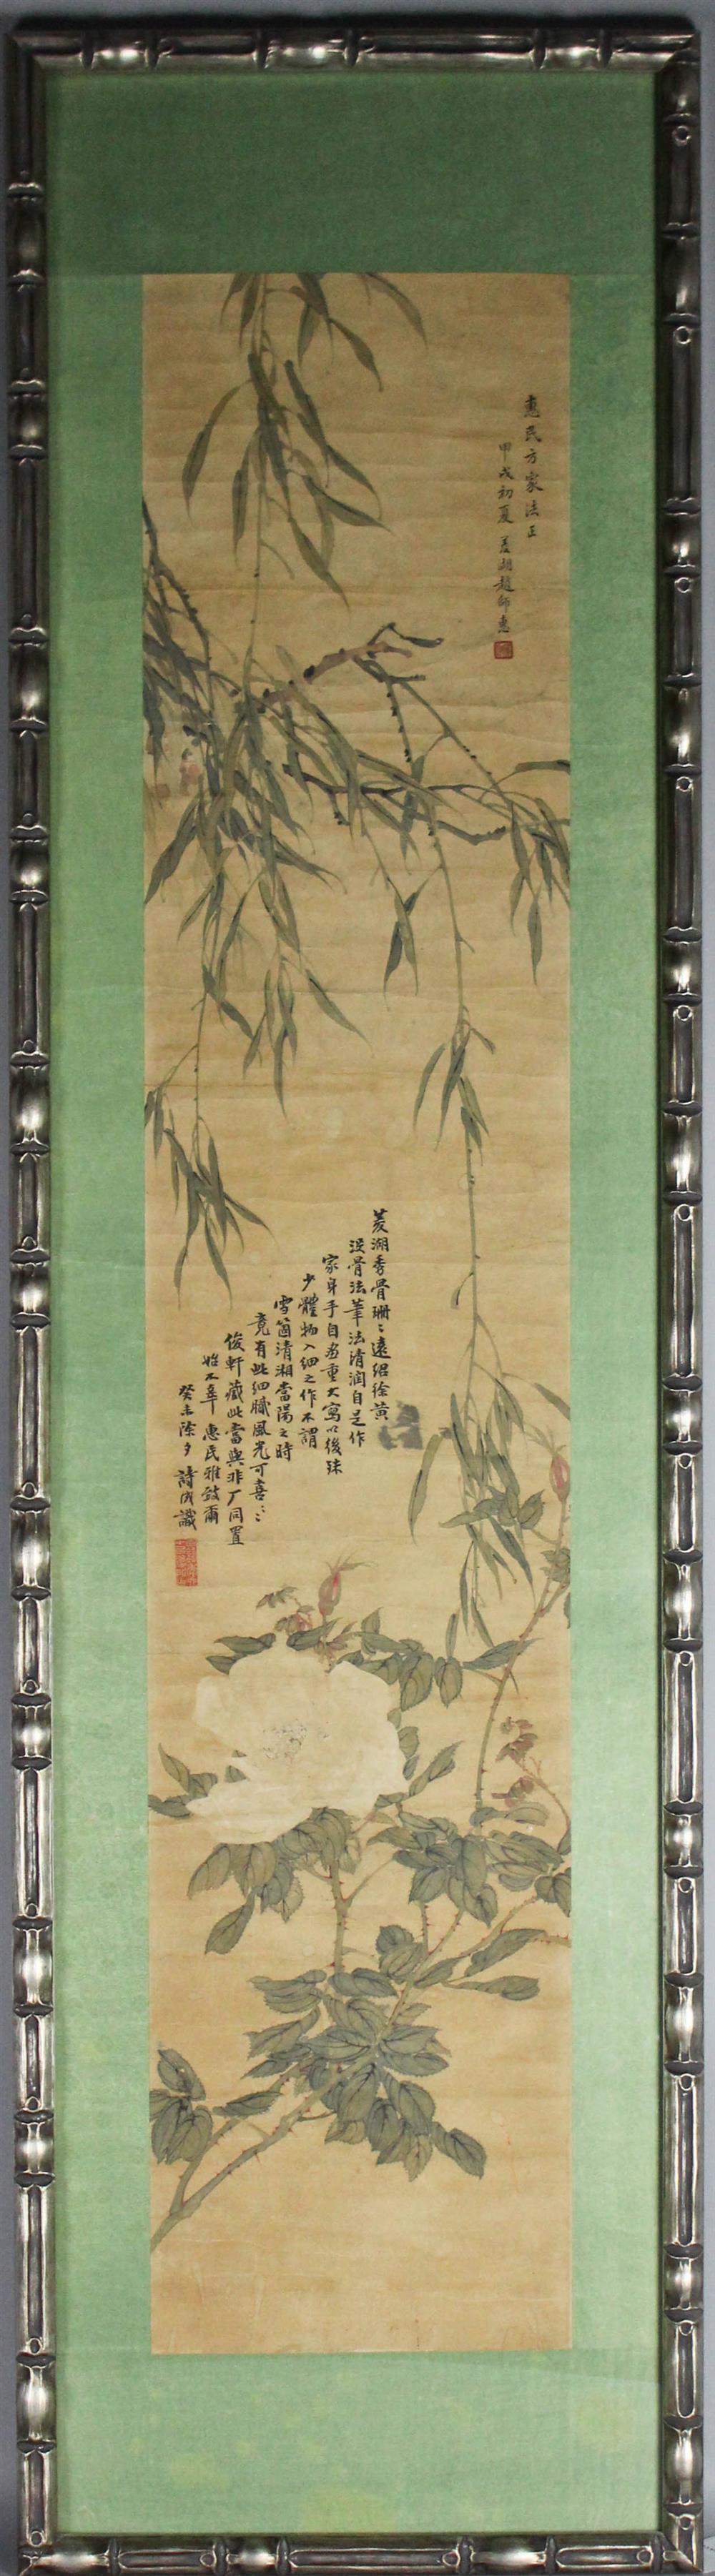 惠民方家法正
甲戌初夏 菱湖趙師惠
菱湖秀骨珊〻遠紹徐黃
沒骨法筆法清潤自是作
家身手自為重大寫以後殊
少體物入細之作不謂
雪窗清湘當陽之時
竟有此細膩風光可喜〻〻
俊軒藏此當與非厂同置
始不辜 惠民雅致爾
癸未除夕 識